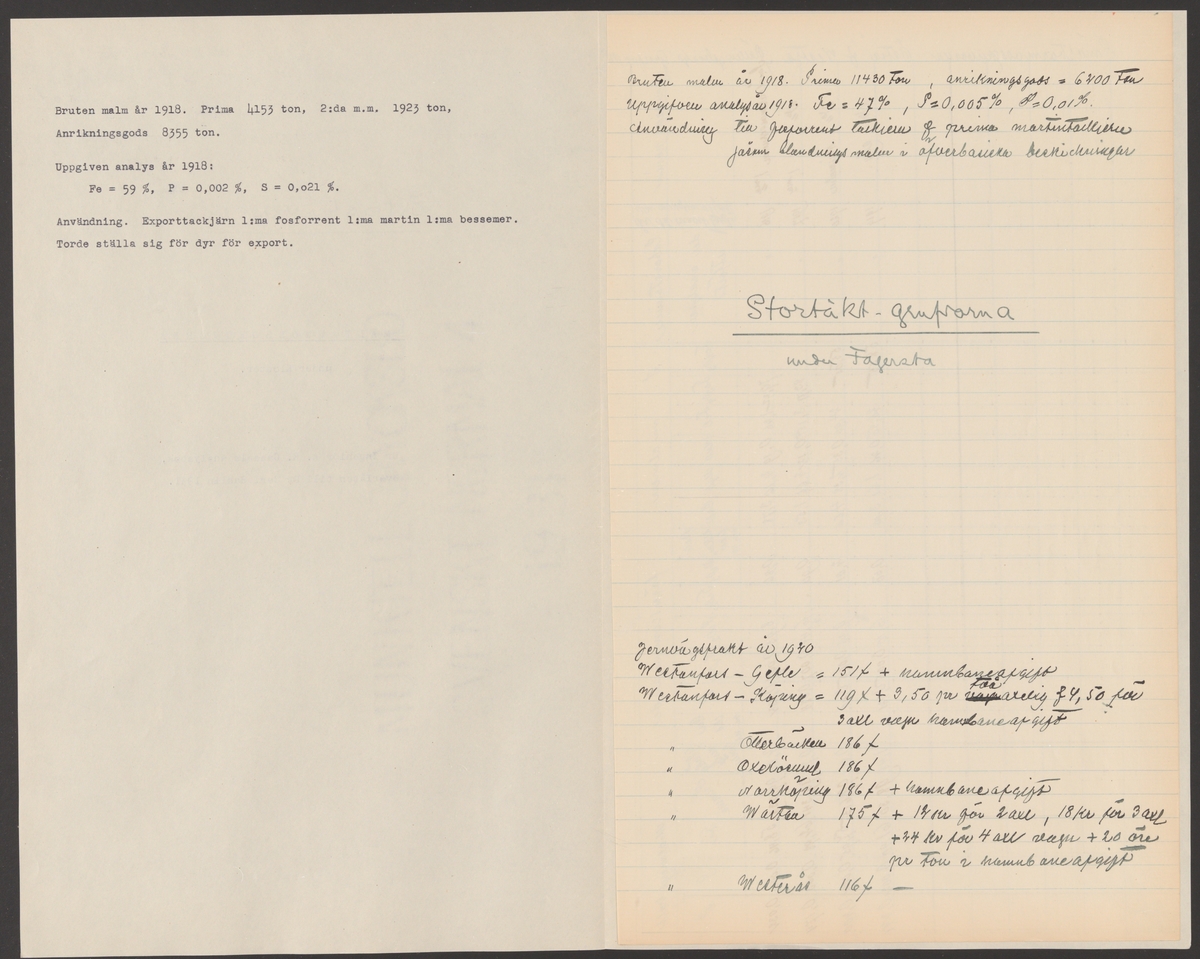 Bruten malm år 1918. Prima 4153 ton, 2:da m.m. 1923 ton,
Anrikningsgods 8355 ton.
Uppgiven analys år 1918:
Fe = 59 %, P = 0,002 %, S = 0,o21 %.
Användning. Exporttackjärn 1:ma fosforrent 1:ma martin 1:ma bessemer.
Torde ställa sig för dyr för export.
Bruten malm år 1918. Prima 11430 ton, anrikningsgods = 6200 ton
Uppgifven analys år 1918. Fe = 47%, P=0,005%, S=0,01%.
Användning till fosforrent tackjern & prima martintackjern
såsom blandningsmalm i öfverbasiska beskickningar
Stortäkt-gruforna
under Fagersta
Jernvägsfrakt år 1920
Westanfors - Gefle = 151 f + hamnbaneafgift
Westanfors - Köping = 119 f + 3,50 pr två axlig & 4,50 för
3 axl vagn hamnbaneafgift
" Otterbäcken 186 f
" Oxelösund 186 f
" Norrköping 186 f + hamnbaneafgift
" Wärtan 175 f + 12 Kr för 2 axl, 18 Kr för 3 axl
+24 Kr för 4 axl vagn + 20 öre
pr ton i hamnbaneafgift
" Westerås 116 f —